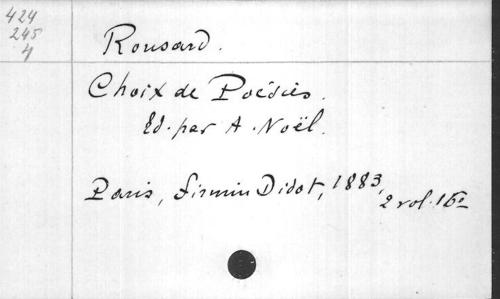 424
245
4
Ronsard.
Choix de Poésies.
Ed. par A. Noël.
Paris, Firmin Didot, 1883,
2 vol. 16º